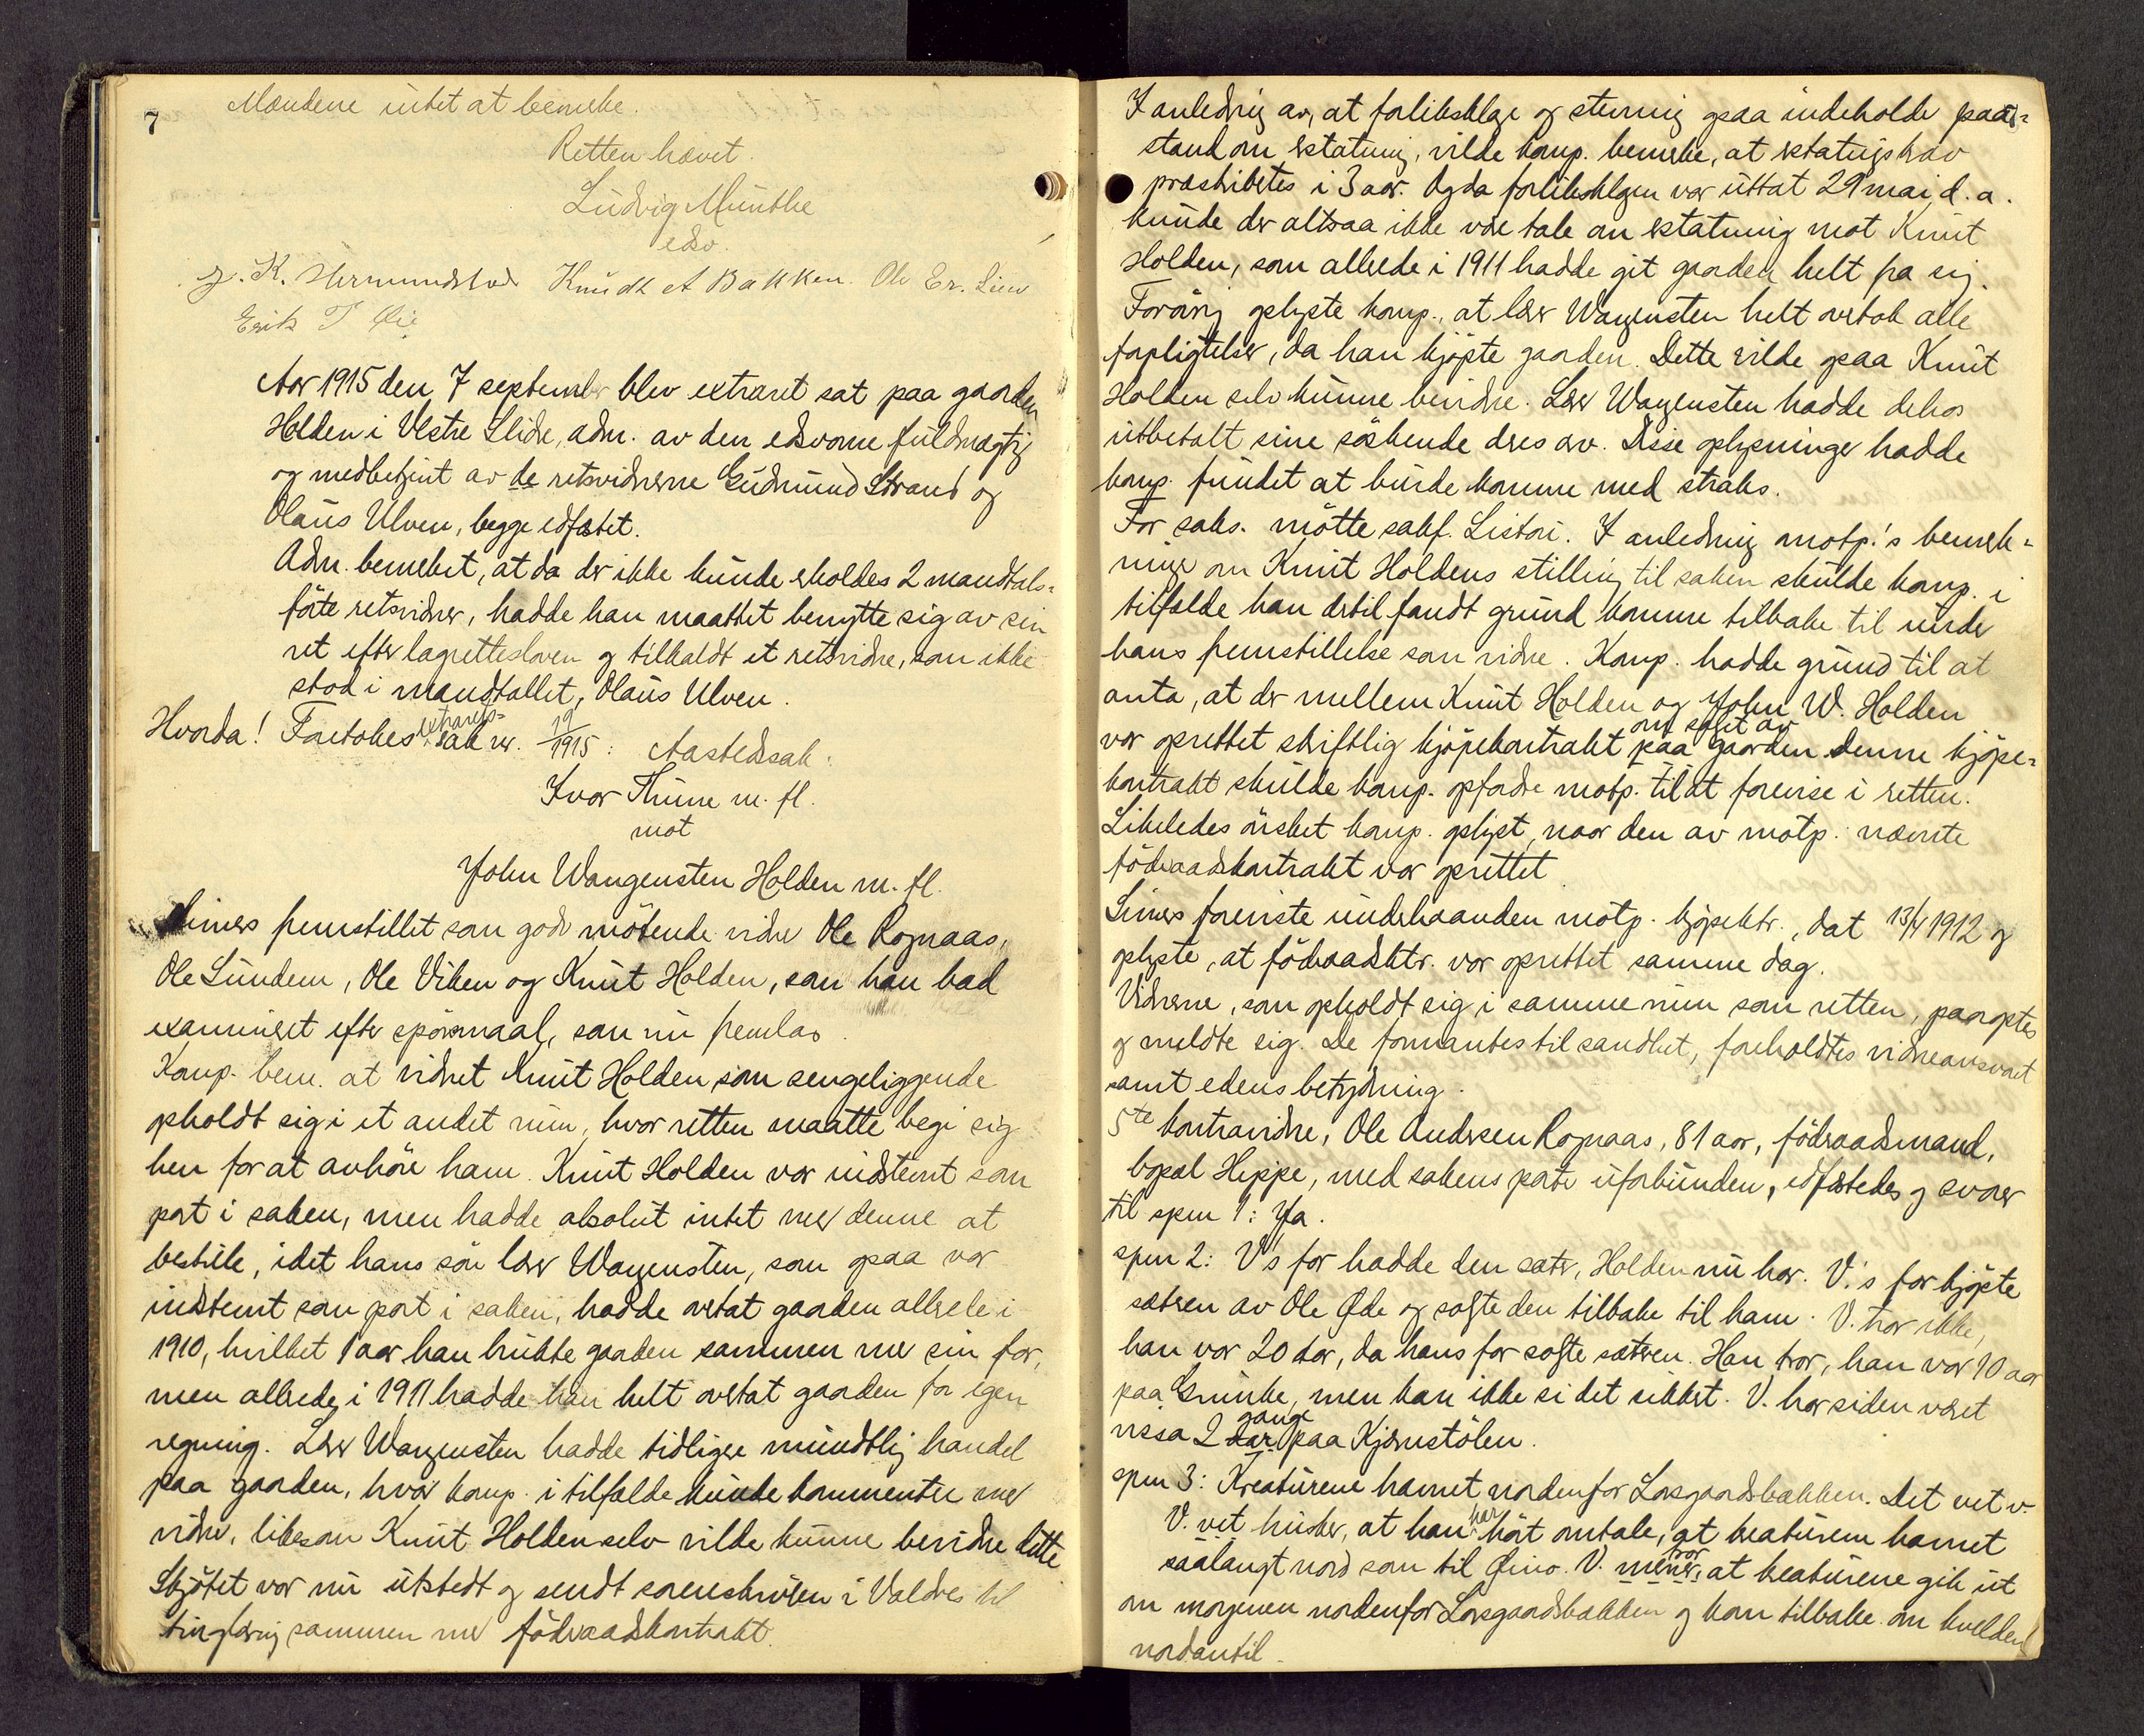 7
Mændene intet at bemerke.
Retten hævet.
Ludvig Munthe
edsv.
K. Hermundstad Knudt A Bakken. Ole Er. Lien
Erik T Øie
Aar 1915 den 7 september blev extraret sat paa gaarden
Holden i Vestre Slidre, adm. av den edsvorne fuldmægtig
og medbetjent av de retsvidnerne Gudmund Strand og
Olaus Ulven, begge edfæstet.
Adm. bemerket, at da der ikke kunde erholdes 2 mandtals-
førte retsvidner, hadde han maattet benytte sig av sin
ret efter lagretteloven og tilkaldt et retsvidne, som ikke
stod i mandtallet, Olaus Ulven.
Hvorda! Foretokes extrarets-
sak nr. 19/1915: Aastedssak:
Ivar Thune m. fl.
mot
John Wangensten Holden m. fl.
fremstillet som godv. møtende vidner Ole Rognaas,
Ole Lundem, Ole Viken og Knut Holden, som han bad
examineret efter spørsmaal, som nu fremlas.
Komp. bem. at vidnet Knut Holden som sengeliggende
opholdt sig i et andet rum, hvor retten maatte begi sig
hen for at avhøre ham. Knut Holden var indstemt som
part i saken, men hadde absolut intet med denne at
bestille, idet hans søn lærer Wangensten, som ogsaa var
indstemt som part i saken, hadde overtat gaarden allerede i
1910, hvilket 1 aar han brukte gaarden sammen med sin far,
men allerede i 1911 hadde han helt overtat gaarden for egen
regning. Lærer Wangensten hadde tidligere mundtlig handel
paa gaarden, hvor komp. i tilfælde kunde kommentere med
vidner, likesom Knut Holden selv vilde kunne bevidne dette
Skjøtet var nu utstedt og sendt sorenskriveren i Valdres til
tinglæsning sammen med føderaadskontrakt.
I anledning av, at forliksklage og stevning ogsaa indeholder paa-
stand om erstatning, vilde komp. bemerke, at erstatningskrav
præskriberes i 3 aar. Og da forliksklagen var uttat 29 mai d. a.
kunde der altsaa ikke være tale om erstatning mot Knut
Holden, som allerede i 1911 hadde git gaarden helt fra sig.
Forøvrig oplyste komp., at lærer Wangensten helt overtok alle
forpligtelser, da han kjøpte gaarden. Dette vilde ogsaa Knut
Holden selv kunne bevidne. Lærer Wangensten hadde dehos
utbetalt sine søskende deres arv. Disse oplysninger hadde
komp. fundet at burde komme med straks.
For saks. møtte sakf. Listou. I anledning motp.'s bemerk-
ninger om Knut Holdens stilling til saken skulde komp. i
tilfælde han dertil fandt grund komme tilbake til under
hans fremstillelse som vidne. Komp. hadde grund til at
anta, at der mellem Knut Holden og John W. Holden
om salget av
var oprettet skriftlig kjøpekontrakt paa gaarden. Denne kjøpe-
kontrakt skulde komp. opfordre motp. til at forevise i retten.
Likeledes ønsket komp. oplyst, naar den av motp. nævnte
føderaadskontrakt var oprettet
Simers foreviste underhaanden motp. kjøpektr., dat 13/4 1912 og
oplyste, at føderaadsktr. var oprettet samme dag.
Vidnerne, som opholdt sig i samme rum som retten, paaroptes
og meldte sig. De formantes til sandhet, foreholdtes vidneansvaret
samt edens betydning.
5te kontravidne, Ole Andersen Rognaas, 81 aar, føderaadsmand,
bopæl Heggje, med sakens parter uforbunden, edfæstedes og svarer
til spm 1: Ja.
spm 2: V's far hadde den sæter, Holden nu har. V.'s far kjøpte
sætren av Ole Øde og solgte den tilbake til ham. V. tror ikke,
han var 20 aar, da hans far solgte sætren. Han tror, han var 10 aar
paa Grunke, men kan ikke si det sikkert. V. har siden været
gange
vissa 2 aar paa Kjærnstølen.
spm 3: Kreaturene havnet nordenfor Lorsgaardsbækken. Det vet v.
V. vet husker, at han har hørt omtale, at kreaturene havnet
saalangt nord som til Grino. V. mener, tror at kreaturene gik ut
om morgenen nordenfor Lorsgaardsbækken og kom tilbake om kvelden
nordantil.